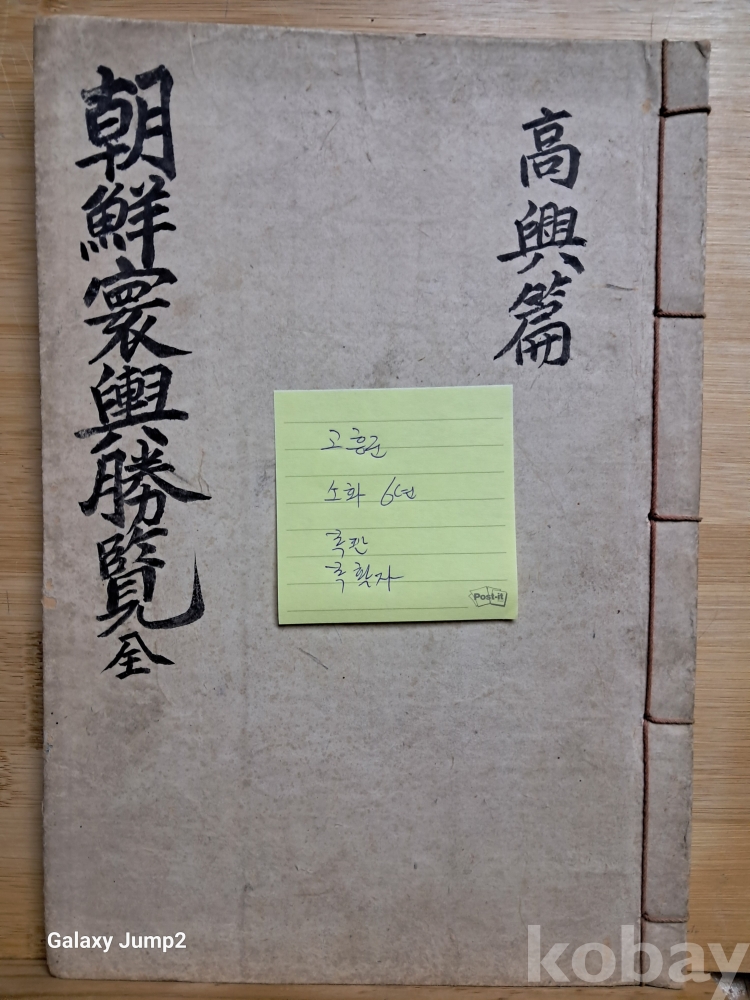 高興篇
朝鮮寰輿勝覽 全
고흥군
소화 6년
Post-it
Galaxy Jump2
kobay